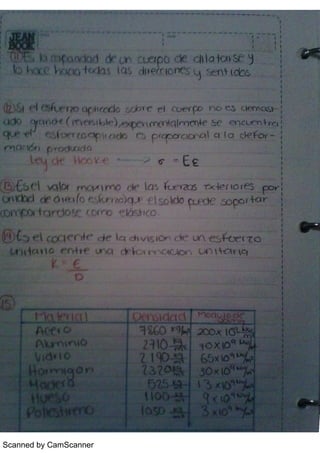 JEAN BOOK
11) Es la capacidad de un cuerpo de dilatarse y
lo hace hacia todas las direcciones y sentidos
12) Si el esfuerzo aplicado sobre el cuerpo no es demasi-
ado grande (reversible), experimentalmente se encuentra
que el esfuerzo aplicado es proporcional a la defor-
mación producida
Ley de Hooke → σ = Eε
13) Es el valor maximo de las fuerzas exteriores por
unidad de área (o esfuerzo) que el solido puede soportar
comportandose como elástico.
14) Es el cociente de la división de un esfuerzo
unitario entre una deformación unitaria
K = E
D
15)
Material Densidad Modulo de
Acero 7860 200x10
Aluminio 2710 70x10⁹
Vidrio 2190 65x10⁹
Hormigon 2320 30x10⁹
Madera 525 13x10⁹
Hueso 1100 9x10⁹
Poliestireno 1050 3x10⁹
Scanned by CamScanner